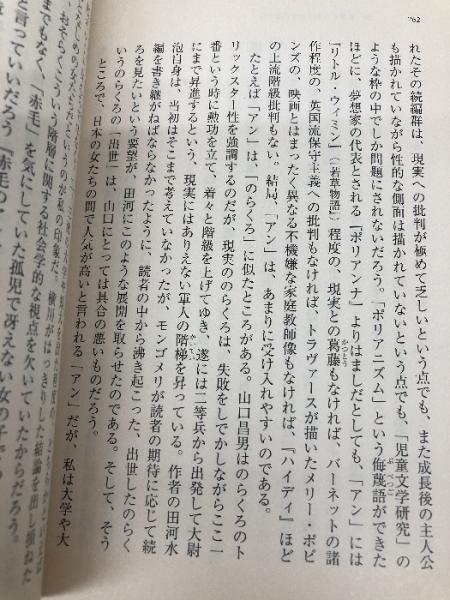 762
れたその続編群は、現実への批判が極めて乏しいという点でも、また成長後の主人公
も描かれていながら性的な側面は描かれていないという点でも、「児童文学研究」の
ような枠の中でしか問題にされないだろう。「ポリアニズム」という侮蔑語ができた
ほどに、夢想家の代表とされる『ポリアンナ』よりはましだとしても、「アン」には
『リトル・ウィミン』(『若草物語』)程度の、現実との葛藤もなければ、バーネットの諸
作程度の、英国流保守主義への批判もなければ、トラヴァースが描いたメリー・ポピ
ンズの、映画とはまったく異なる不機嫌な家庭教師像もなければ、『ハイディ』ほど
の上流階級批判もない。結局、「アン」は、あまりに受け入れやすいのである。
たとえば「アン」は、「のらくろ」に似たところがある。山口昌男はのらくろのト
リックスター性を強調するのだが、現実ののらくろは、失敗をしでかしながらここ一
番という時に勲功を立て、着々と階級を上げてゆき、遂には二等兵から出発して大尉
にまで昇進するという、現実にはありえない軍人の階梯を昇っている。作者の田河水
泡自身は、当初はそこまで考えていなかったが、モンゴメリが読者の期待に応じて続
編を書き継がねばならなかったように、読者の中から沸き起こった、出世したのらく
ろを見たいという要望が、田河にこのような展開を取らせたのである。そして、そう
いうのらくろの「出世」は、山口にとっては具合の悪いものだろう。
ところで、日本の女たちの間で人気が高いと言われる「アン」だが、私は大学や大